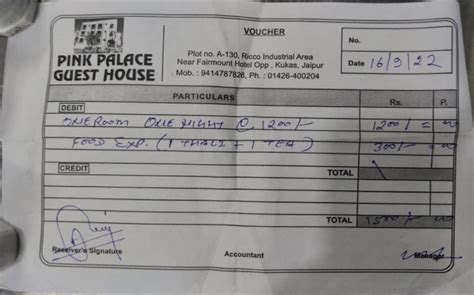 VOUCHER
PINK PALACE
GUEST HOUSE
Plot no. A-130, Ricco Industrial Area
Near Fairmount Hotel Opp., Kukas, Jaipur
Mob. : 9414787826, Ph. : 01426-400204
No.
Date 16/9/22
PARTICULARS Rs. P.
DEBIT
ONE ROOM ONE NIGHT @ 1200/- 1200/- = 00
FOOD EXP. (1 THALI + 1 TEA) 300/- = 00
TOTAL
CREDIT
TOTAL 1500/- = 00
Receiver's Signature
Accountant
Manager